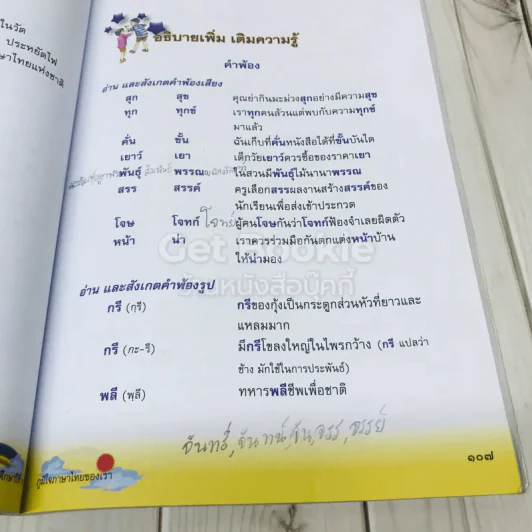 ในวัด
ประหยัดไฟ
ภาษาไทยแห่งชาติ
อธิบายเพิ่ม เติมความรู้
คำพ้อง
อ่าน และสังเกตคำพ้องเสียง
สุก สุข คุณย่ากินมะม่วงสุกอย่างมีความสุข
ทุก ทุกข์ เราทุกคนล้วนแต่พบกับความทุกข์
มาแล้ว
คั่น ขั้น ฉันเก็บที่คั่นหนังสือได้ที่ขั้นบันได
เยาว์ เอา เด็กวัยเยาว์ควรซื้อของราคาเยา
พันธุ์ พรรณ ในสวนมีพันธุ์ไม้นานาพรรณ
สรร สรรค์ ครูเลือกสรรผลงานสร้างสรรค์ของ
นักเรียนเพื่อส่งเข้าประกวด
โจษ โจทก์ โจทย์ ผู้คนโจษกันว่าโจทก์ฟ้องจำเลยผิดตัว
หน้า น่า เราควรร่วมมือกันตกแต่งหน้าบ้าน
ให้น่ามอง
Get Bookie
ร้านหนังสือบุ๊คกี้
อ่าน และสังเกตคำพ้องรูป
กรี (กรี) กรีของกุ้งเป็นกระดูกส่วนหัวที่ยาวและ
แหลมมาก
กรี (กะ-รี) มีกรีโขลงใหญ่ในไพรกว้าง (กรี แปลว่า
ช้าง มักใช้ในการประพันธ์)
พลี (พลี) ทหารพลีชีพเพื่อชาติ
จันทร์, จันทน์, จัน, จรร, จรรย์
๑๐๗
ภูมิใจภาษาไทยของเรา